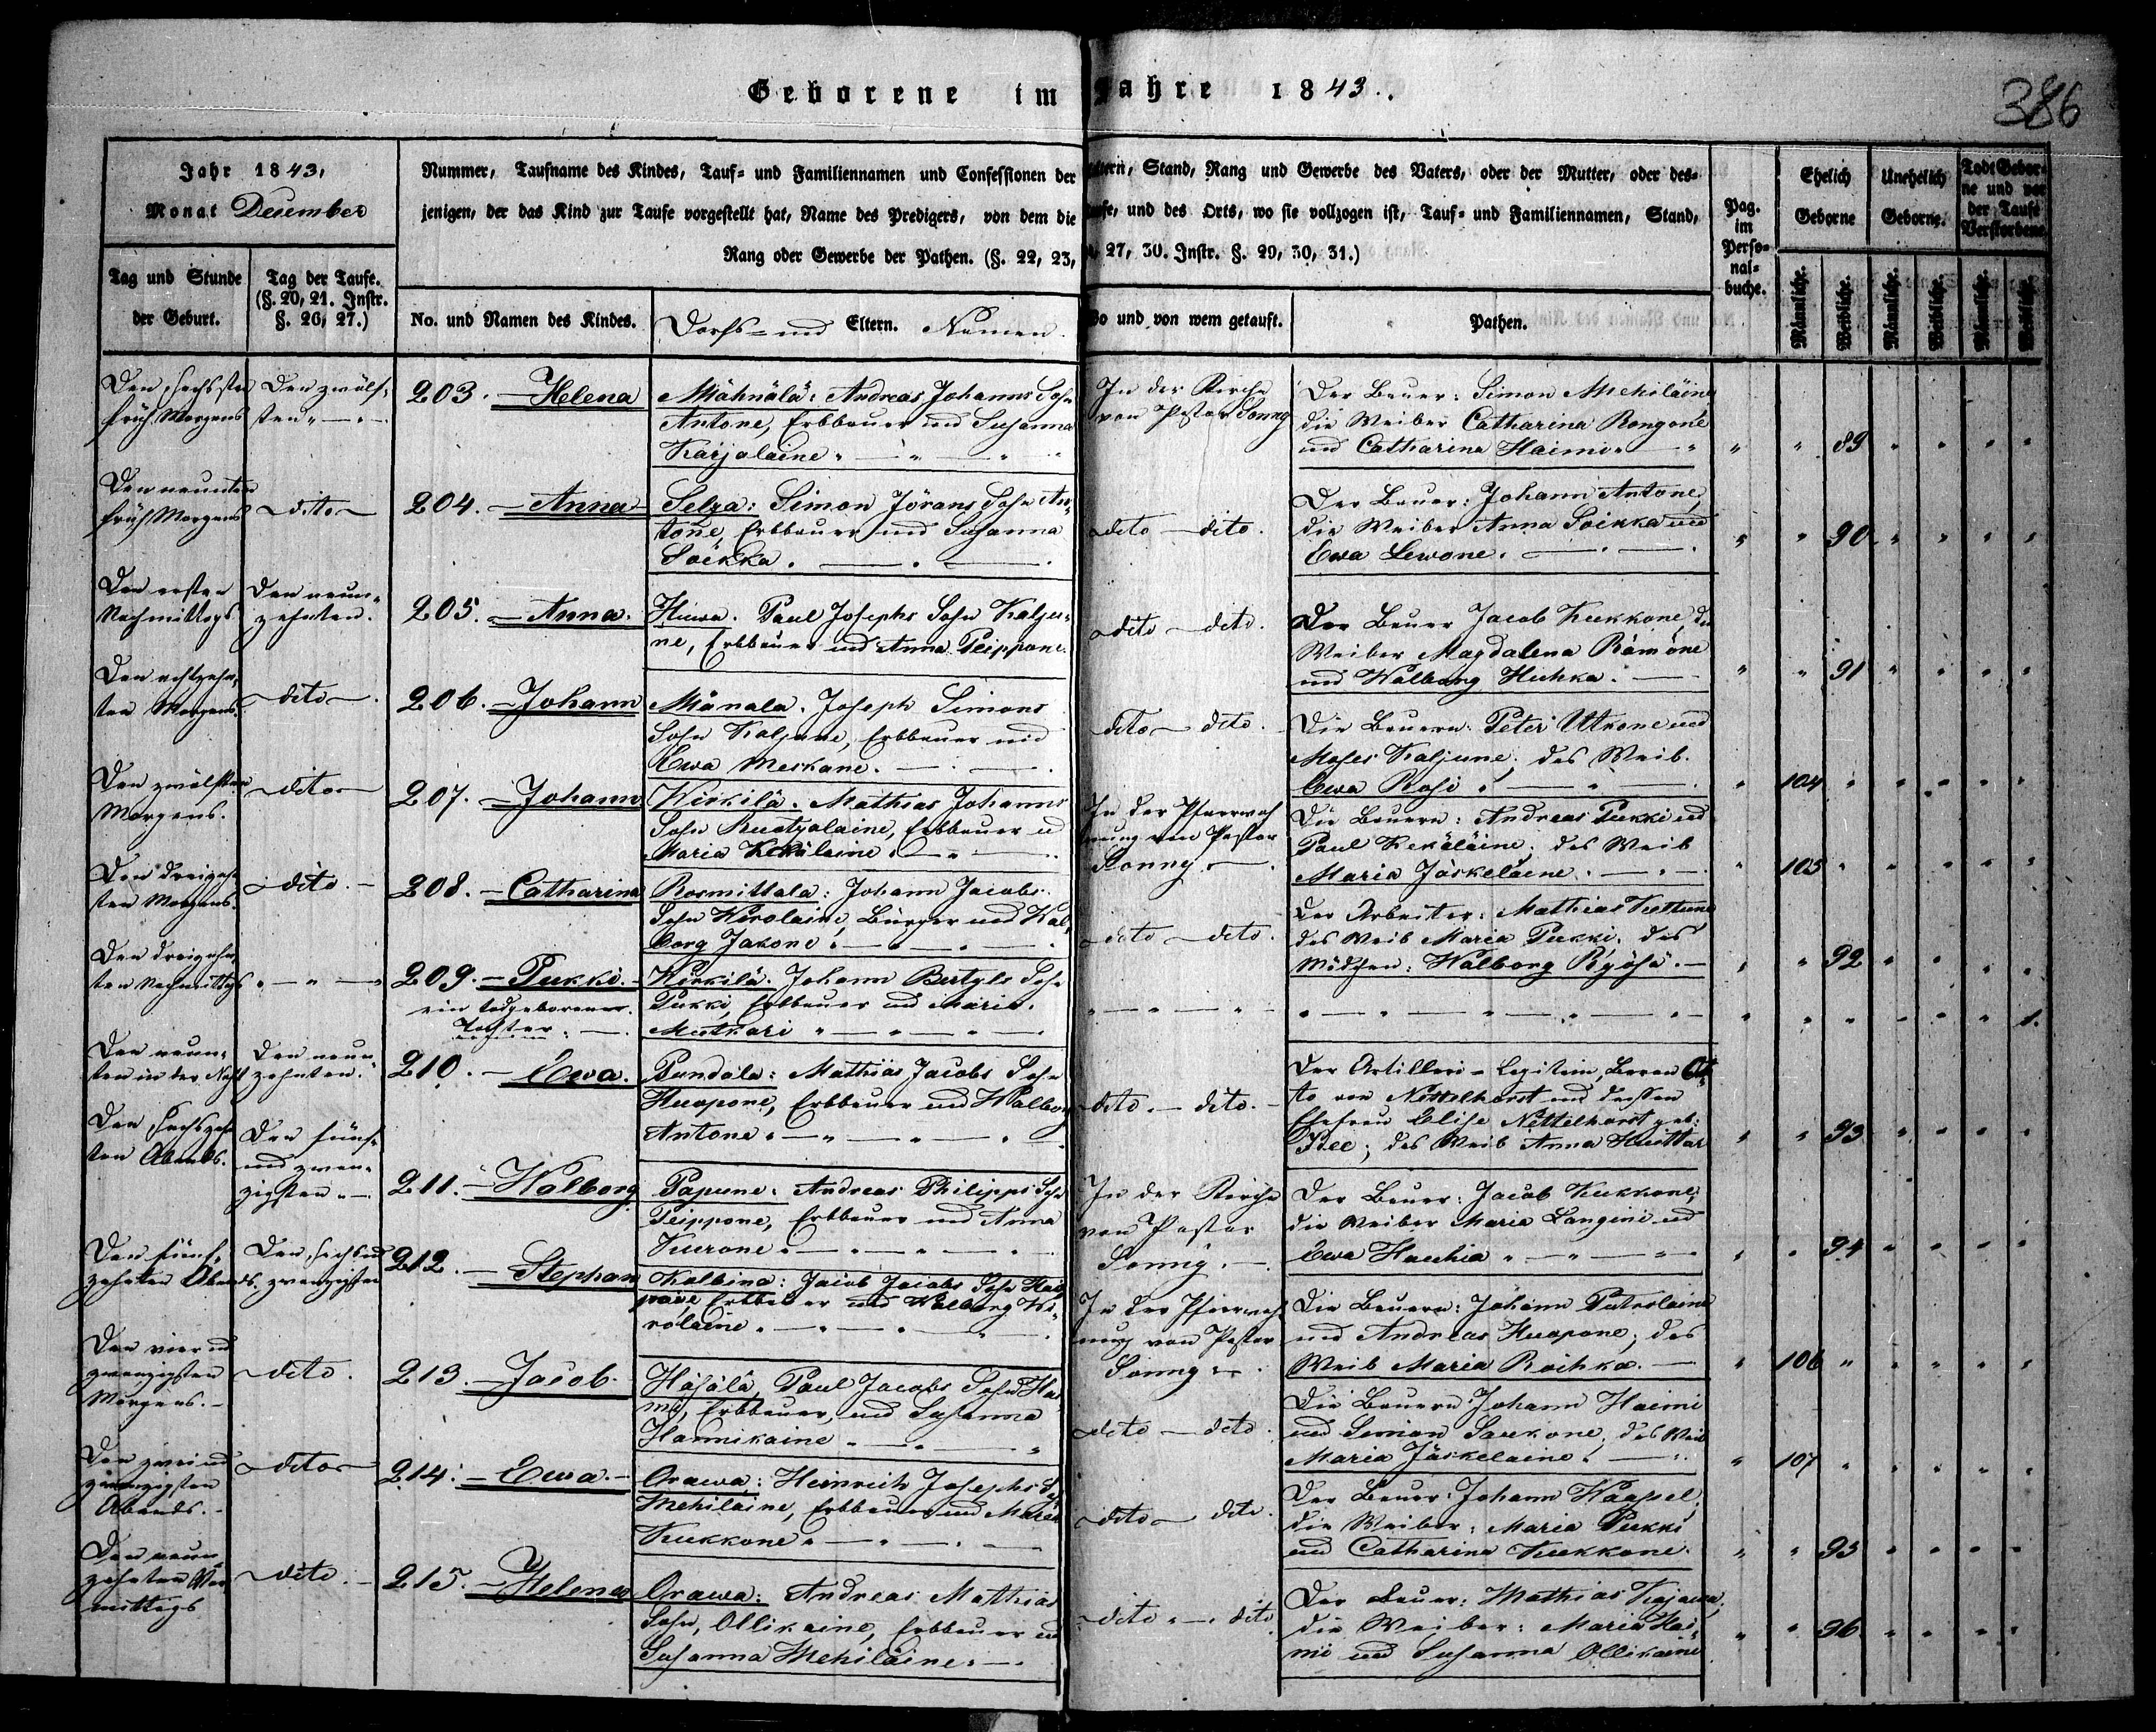 Geborene im Jahre 1843.
386
Jahr 1843,
Monat December
Nummer, Taufname des Kindes, Tauf- und Familiennamen und Confessionen der Eltern, Stand, Rang und Gewerbe des Vaters, oder der Mutter, oder des-
jenigen, der das Kind zur Taufe vorgestellt hat, Name des Predigers, von dem die Taufe, und des Orts, wo sie vollzogen ist, Tauf- und Familiennamen, Stand,
Rang oder Gewerbe der Pathen. (§. 22, 23, 27, 30. Instr. §. 29, 30, 31.)
Pag. im Perso-nal-buche.
Ehelich Geborne
Unehelich Geborne.
Todt Gebor-ne und vor der Taufe Verstorbene
Tag und Stunde der Geburt.
Tag der Taufe. (§. 20, 21. Instr. §. 26, 27.)
No. und Namen des Kindes.
Dorfs- und Eltern. Namen.
Wo und von wem getauft.
Pathen.
Männliche. Weibliche. Männliche. Weibliche. Männliche. Weibliche.
Den sechsten
früh Morgens
Den zwölf-
ten
203. Helena
Mähnälä: Andreas Johanns Sohn
Antone, Erbbauer und Susanna
Karjalaine
In der Kirche
von Pastor Sonny
Der Bauer: Simon Mehiläine
die Weiber Catharina Rongone
und Catharina Haimi
89
Den neunten
früh Morgens
dito
204. Anna
Selza: Simon Jörans Sohn An-
tone, Erbbauer und Susanna
Soikka.
dito dito.
Der Bauer: Johann Antone,
die Weiber Anna Soikka und
Ewa Lewone.
90
Den ersten
Nachmittags
Den neun-
zehnten.
205. Anna.
Hiwa. Paul Josephs Sohn Kalju-
ne, Erbbauer und Anna Peippone.
dito dito.
Der Bauer Jacob Kukkone, die
Weiber Magdalena Rämöne
und Walborg Huhka.
91
Den achtzehn-
ten Morgens.
dito
206. Johann
Mänala. Joseph Simons
Sohn Kaljune, Erbbauer und
Ewa Meskane.
dito dito.
Die Bauern: Peter Utrone und
Moses Kaljune, das Weib.
Ewa Rosi
104
Den zwölften
Morgens.
dito
207. Johann
Kirkilä. Mathias Johanns
Sohn Ruotzalaine, Erbbauer u
Maria Kekäläine
In der Pfarrwoh
nung von Pastor
Sonny.
Die Bauern: Andreas Pukki und
Paul Kekäläine, das Weib
Maria Jäskeläine.
105
Den dreizehn
ten Morgens.
dito.
208. Catharina
Rosmittala: Johann Jacobs
Sohn Wirolaine, Bürger und Wal-
borg Jakone.
dito dito.
Der Arbeiter: Mathias Kuttune
das Weib Maria Pukki, das
Mädchen: Walborg Ryösä.
92
Den dreizehn
ten Nachmittags
209. Pukki.
ein todgeborener
Tochter.
Kirkilä. Johann Bertyls Sohn
Pukki, Erbbauer und Maria
Mutkari
1.
Den neun-
ten in der Nacht
Den neun
zehnten.
210. Ewa.
Pundala: Mathias Jacobs Sohn
Huopone, Erbbauer und Walborg
Antone
dito. dito.
Der Artilleri- Baron Ot-
to von Nettelhorst und dessen
Ehefrau Elise Nettelhorst geb:
das Weib Anna Huittar
93
Den sechszehn
ten Abends.
Den fünf-
und zwan-
zigsten
211. Walborg
Papune: Andreas Philipps Sohn
Peippone, Erbbauer und Anna
Kurone
In der Kirche
von Pastor
Sonny.
Der Bauer: Jacob Kukkone,
die Weiber Maria Langini und
Ewa Hachia
94
Den fünf-
zehnten Abends
Den sechsund
zwanzigsten
212. Stephan
Kalbina: Jacob Jacobs Sohn Hai
pone Erbbauer und Walborg Ki-
rolaine.
In der Pfarrwoh
nung von Pastor
Sonny
Die Bauern: Johann Putrolaine
und Andreas Huopone, das
Weib Maria Roihka.
106
Den vier und
zwanzigsten
Morgens.
dito.
213. Jacob.
Häsälä, Paul Jacobs Sohn Hai
mi, Erbbauer, und Susanna
Hannikaine
dito dito.
Die Bauern Johann Haimi
und Simon Saukone, das Weib
Maria Jäskelaine.
107
Den zwei und
zwanzigsten
Abends.
dito
214. Ewa.
Orawa: Heinrich Josephs S.
Mehiläine, Erbbauer und Maria
Kukkone
dito dito.
Der Bauer: Johann Haapsel,
die Weiber: Maria Pukki
und Catharina Kukkone.
95
Den neun
zehnten Vor
mittags
dito.
215. Helena
Orawa: Andreas Mathias
Sohn, Ollikaine, Erbbauer und
Susanna Mehiläine.
dito dito
Der Bauer: Mathias Kajawa,
die Weiber: Maria Hai-
mi und Susanna Ollikaine
96